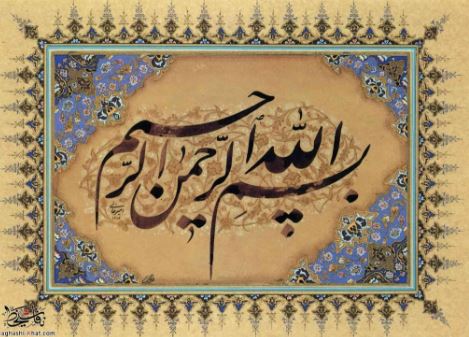 بسم الله الرحمن الرحیم
aghashi-khat.com